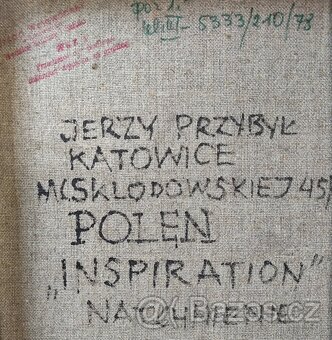 poz 1.
5333/210/78
JERZY PRZYBYŁ
KATOWICE
M.C.SKLODOWSKIEJ 45/
POLEN
„INSPIRATION"
NATCHNIENIE
Bazos.cz